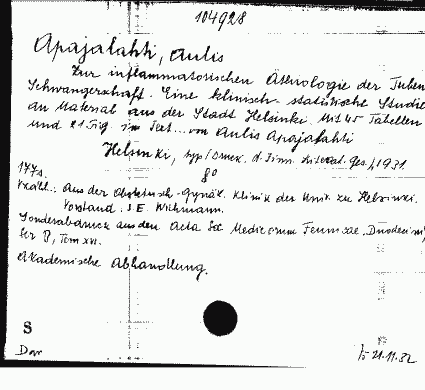 104928
Apajalahti, Aulis
Zur inflammatorischen Äthiologie der Tuben
Schwangerschaft. Eine klinisch-statistische Studie
an Material aus der Stadt Helsinki. Mit 45 Tabellen
und 21 Fig. im Text... von Aulis Apajalahti
Helsinki, typ/Druck. d. Finn. Literat. Ges., 1931
8°
177s.
Aus der Obstetrisch-Gynäk. Klinik der Univ. zu Helsinki.
Vorstand: S. E. Wichmann.
Sonderabdruck aus den Acta Soc Medicorum Fennicae "Duodecim",
Ser B, Tom XVI.
Akademische Abhandlung.
S
21.11.32